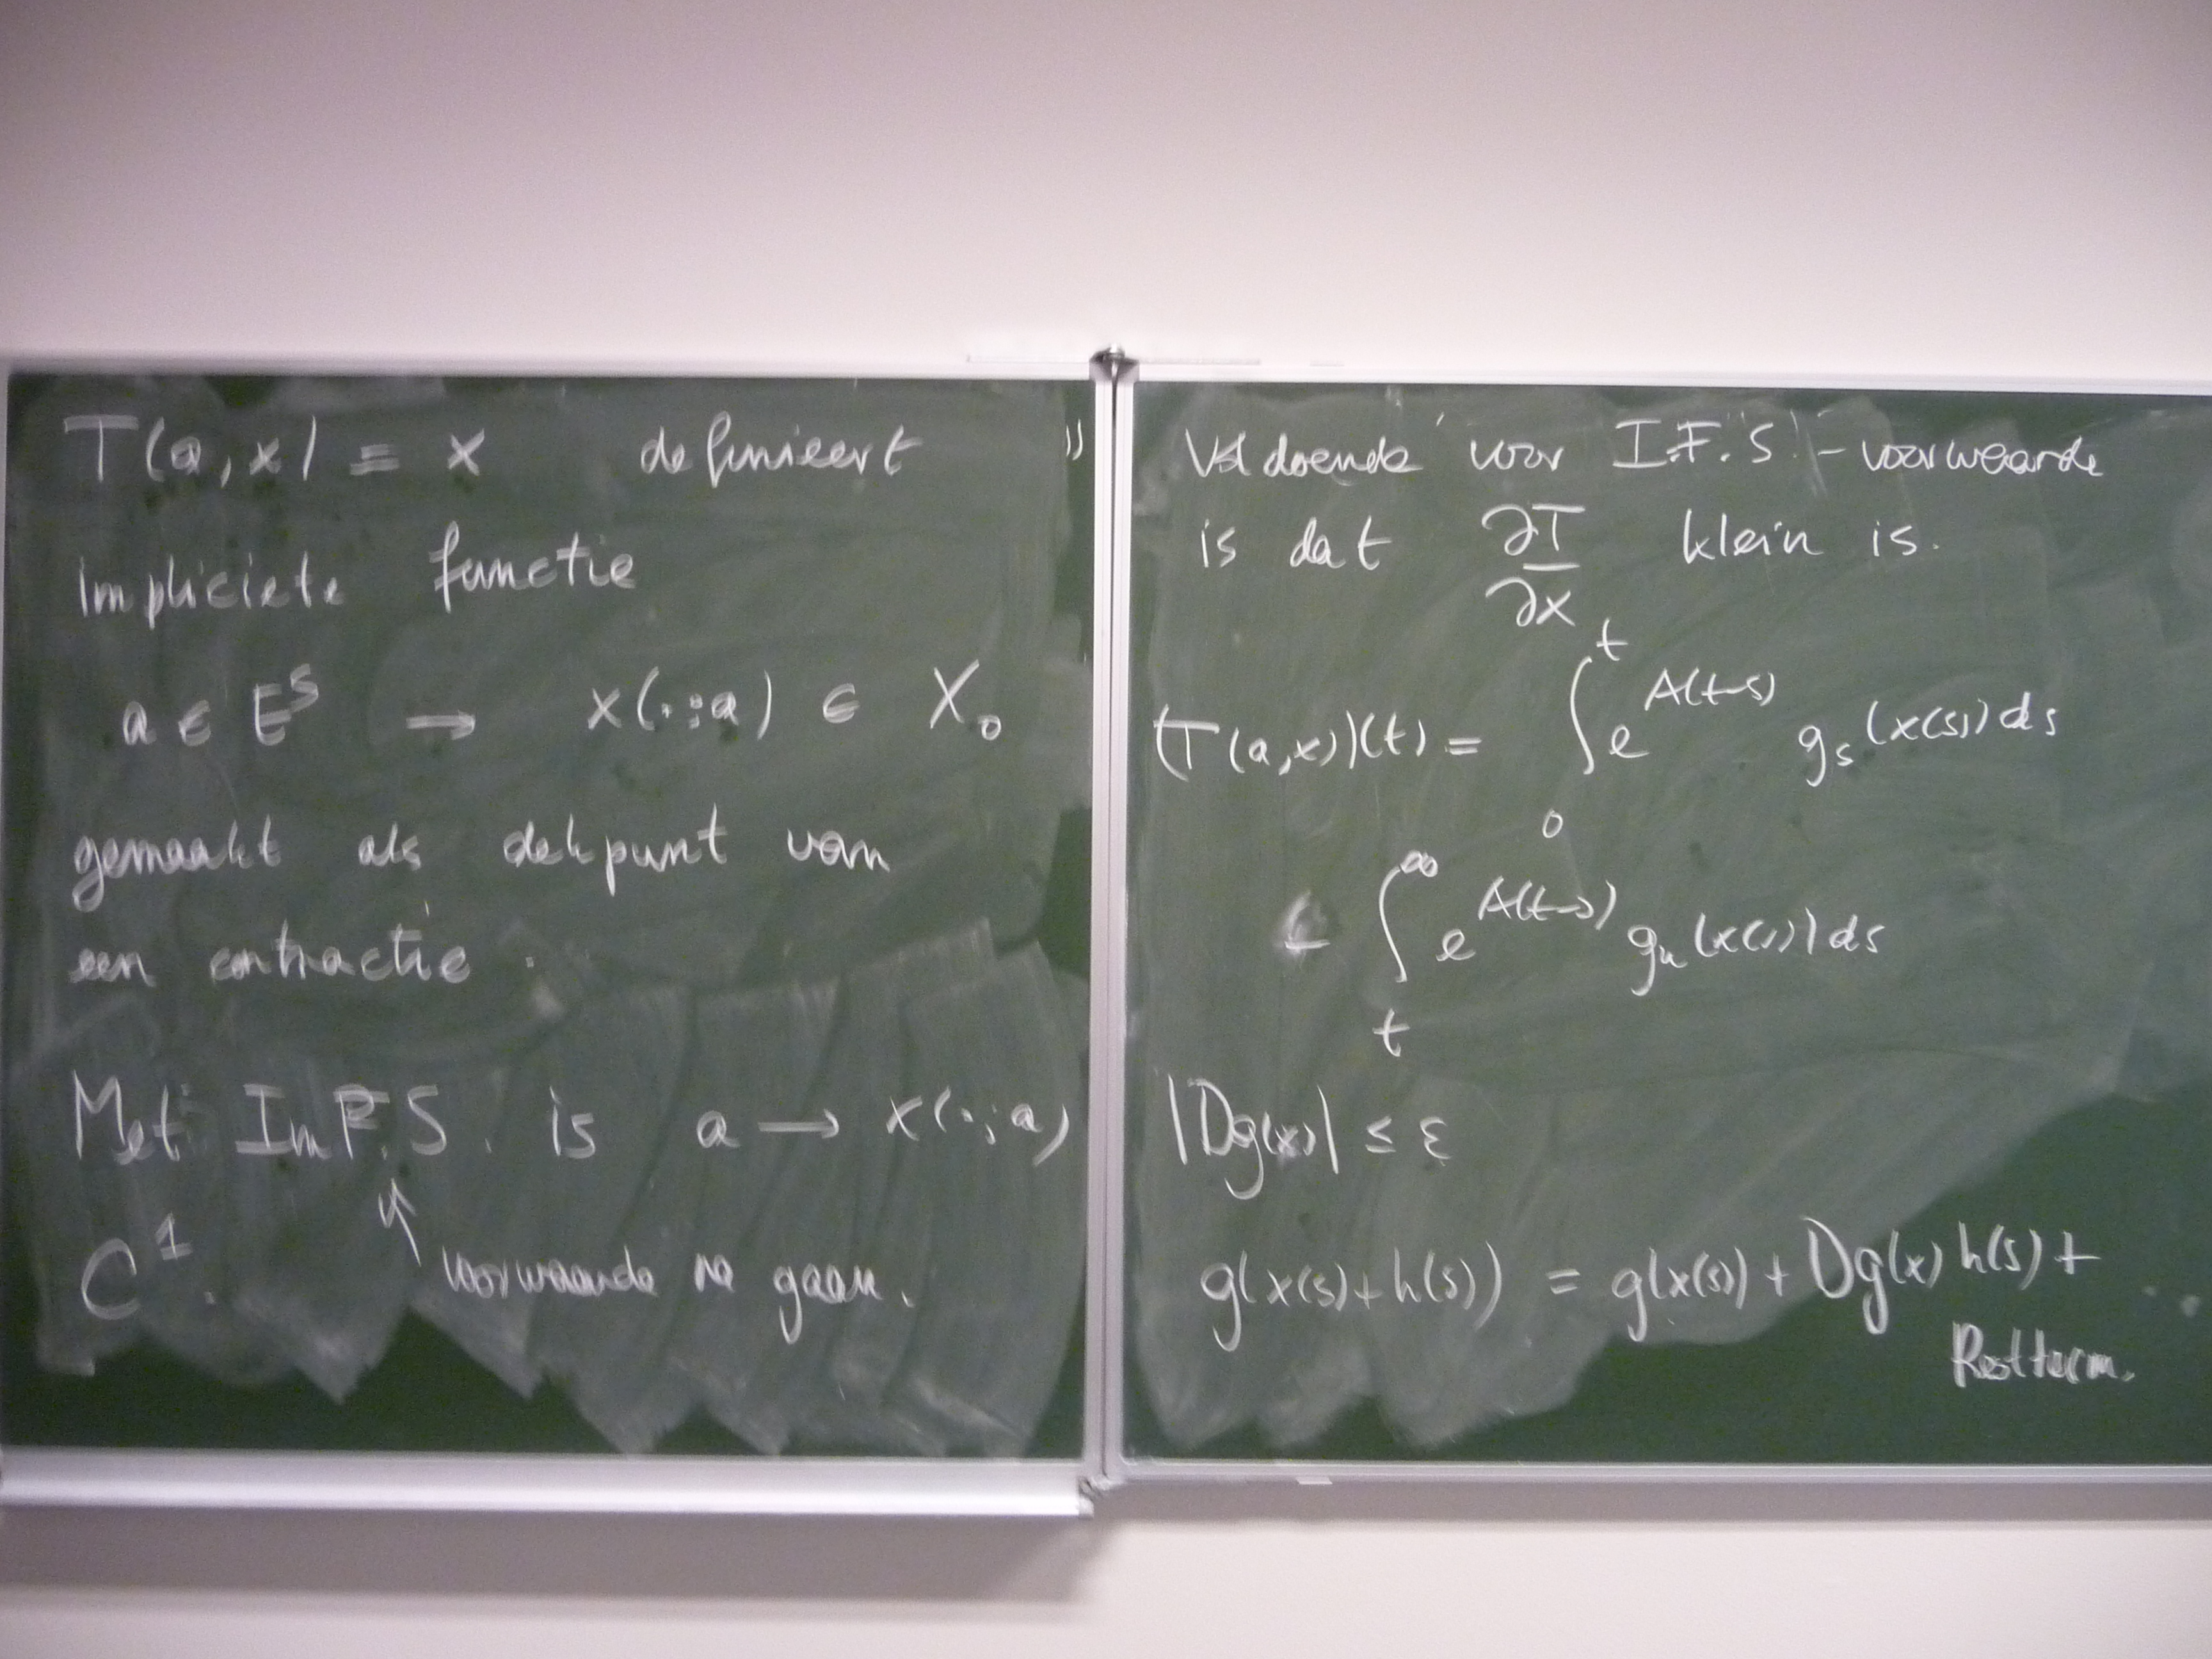 T(a,x) = x definieert
impliciete functie
a ∈ E^s → x(·;a) ∈ X_0
gemaakt als dekpunt van
een contractie.
Met ImF.S. is a → x(·;a)
C^1. ↑ voorwaarde na gaan.
Voldoende voor I.F.S.-voorwaarde
is dat ∂T/∂x klein is.
(T(a,x))(t) = ∫_0^t e^{A(t-s)} g_s(x(s)) ds
∫_t^∞ e^{A(t-s)} g_u(x(s)) ds
|Dg(x)| ≤ ε
g(x(s)+h(s)) = g(x(s)) + Dg(x) h(s) +
Restterm.